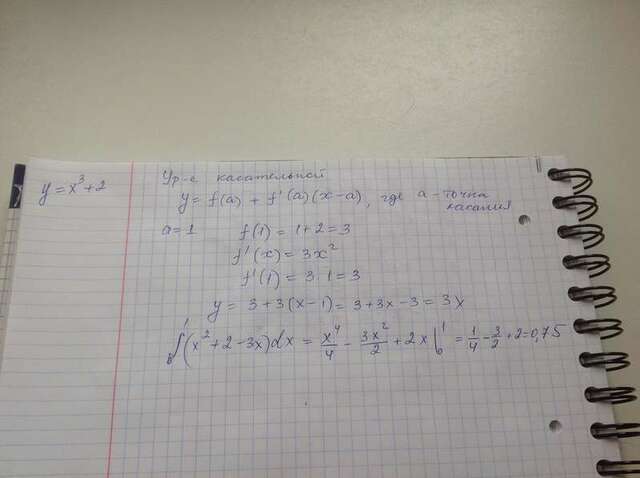 y = x³ + 2
Ур-е касательной
y = f(a) + f'(a)(x - a), где a - точка касания
a = 1 f(1) = 1 + 2 = 3
f'(x) = 3x²
f'(1) = 3 · 1 = 3
y = 3 + 3(x - 1) = 3 + 3x - 3 = 3x
∫₀¹(x² + 2 - 3x)dx = x⁴/4 - 3x²/2 + 2x |₀¹ = 1/4 - 3/2 + 2 = 0,75